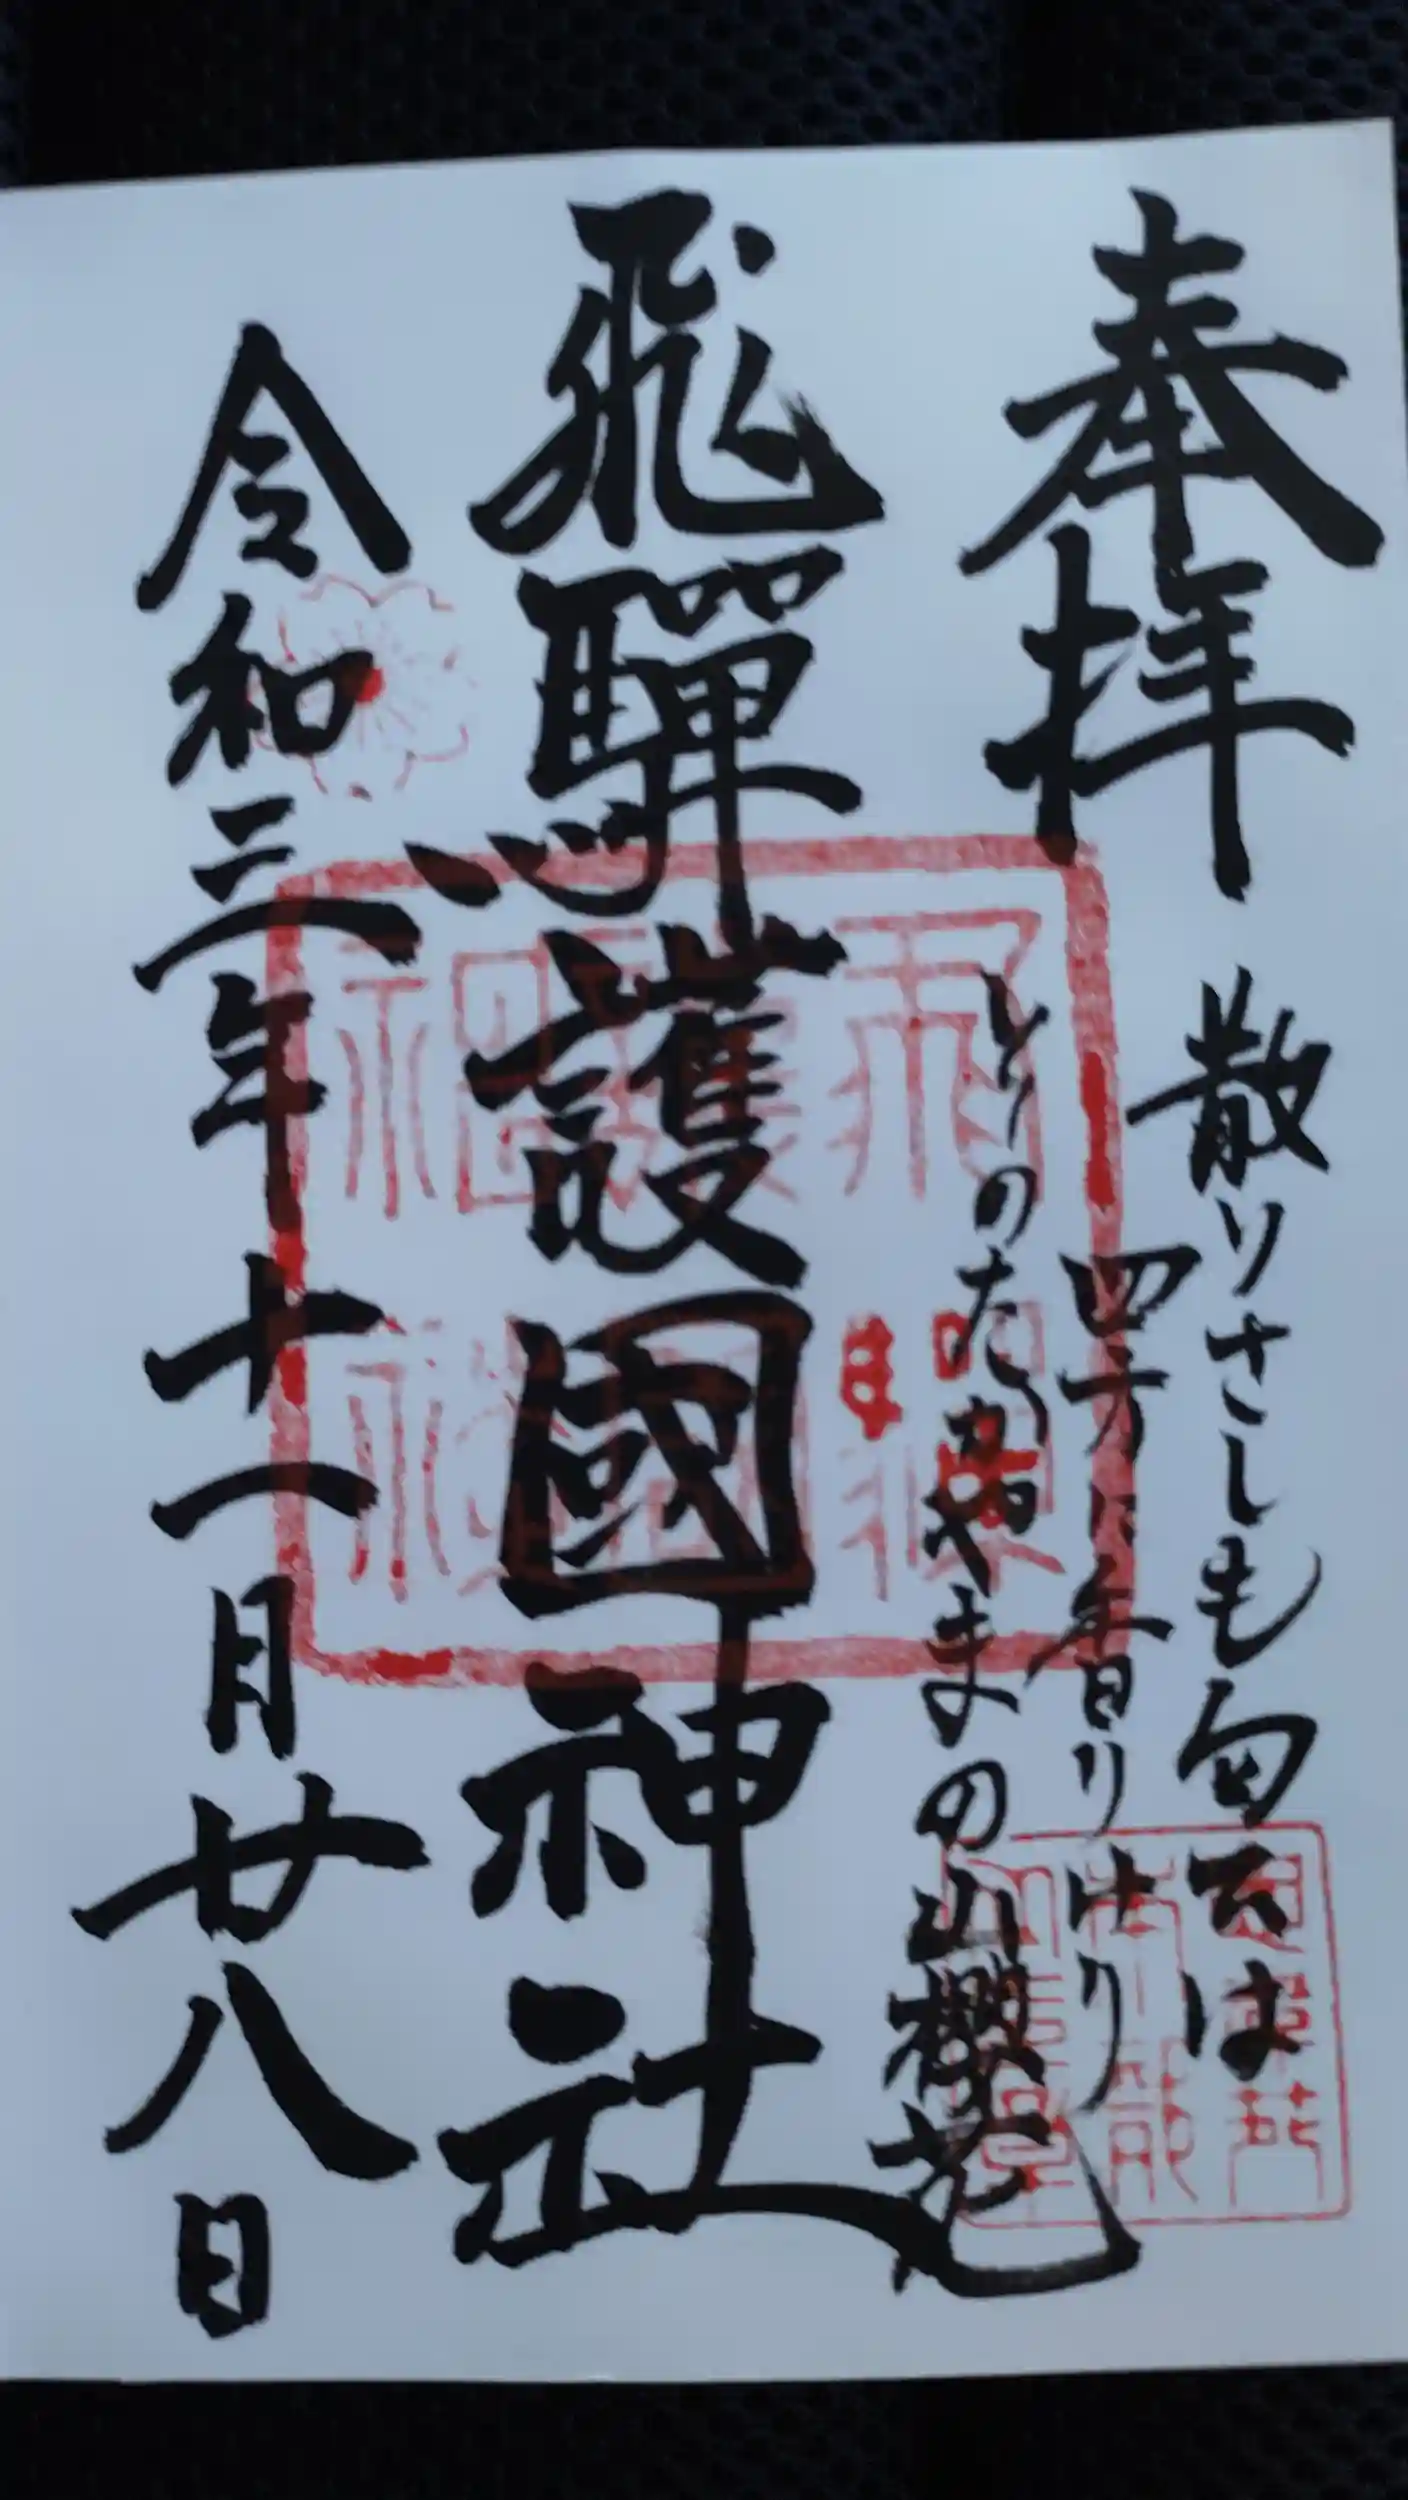 奉拝
散りさしも匂云は
四方に香りけり
とりのたかやまの山櫻花
飛驒護國神社
令和三年十一月廿八日